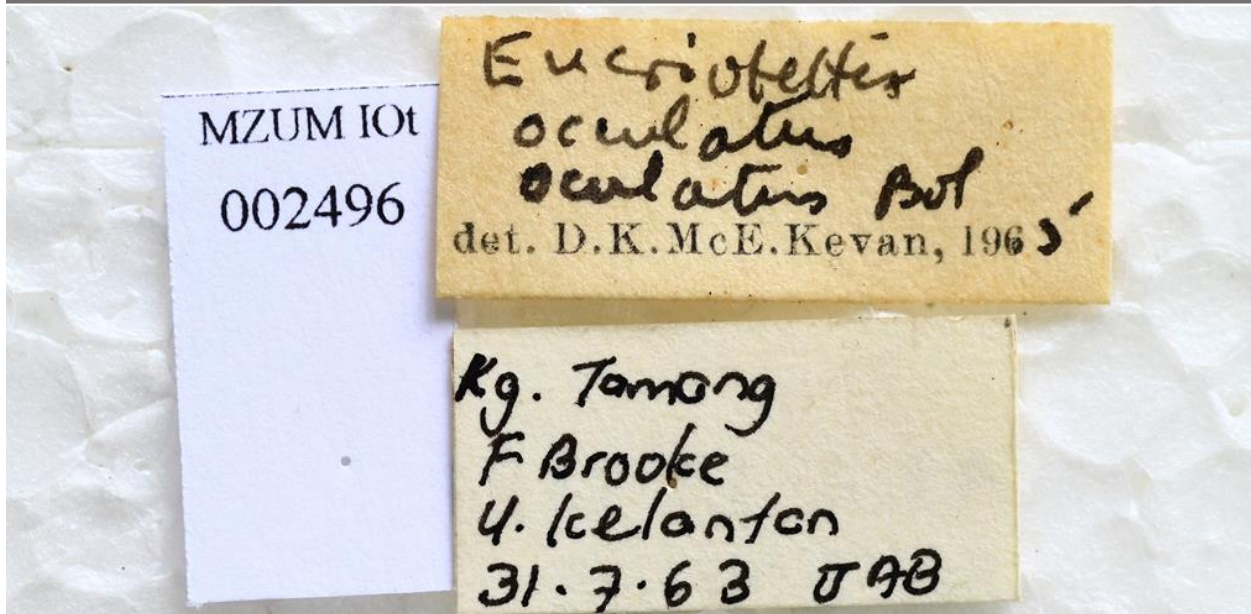 MZUM IOt
002496
Eucriotettix
oculatus
oculatus Bol
det. D.K.McE.Kevan, 1965
Kg. Tamang
F Brooke
U. Kelantan
31.7.63 JAB